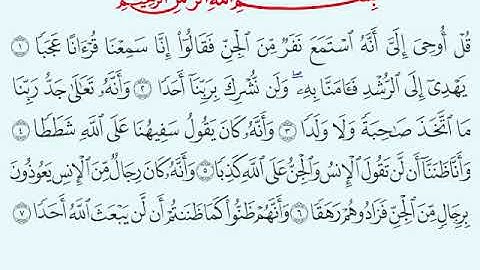 بِسْمِ اللَّهِ الرَّحْمَنِ الرَّحِيمِ
قُلْ أُوحِىَ إِلَىَّ أَنَّهُ ٱسْتَمَعَ نَفَرٌ مِّنَ ٱلْجِنِّ فَقَالُوٓا۟ إِنَّا سَمِعْنَا قُرْءَانًا عَجَبًا ١
يَهْدِىٓ إِلَى ٱلرُّشْدِ فَـَٔامَنَّا بِهِۦ ۖ وَلَن نُّشْرِكَ بِرَبِّنَآ أَحَدًا ٢ وَأَنَّهُۥ تَعَـٰلَىٰ جَدُّ رَبِّنَا
مَا ٱتَّخَذَ صَـٰحِبَةً وَلَا وَلَدًا ٣ وَأَنَّهُۥ كَانَ يَقُولُ سَفِيهُنَا عَلَى ٱللَّهِ شَطَطًا ٤
وَأَنَّا ظَنَنَّآ أَن لَّن تَقُولَ ٱلْإِنسُ وَٱلْجِنُّ عَلَى ٱللَّهِ كَذِبًا ٥ وَأَنَّهُۥ كَانَ رِجَالٌ مِّنَ ٱلْإِنسِ يَعُوذُونَ
بِرِجَالٍ مِّنَ ٱلْجِنِّ فَزَادُوهُمْ رَهَقًا ٦ وَأَنَّهُمْ ظَنُّوا۟ كَمَا ظَنَنتُمْ أَن لَّن يَبْعَثَ ٱللَّهُ أَحَدًا ٧